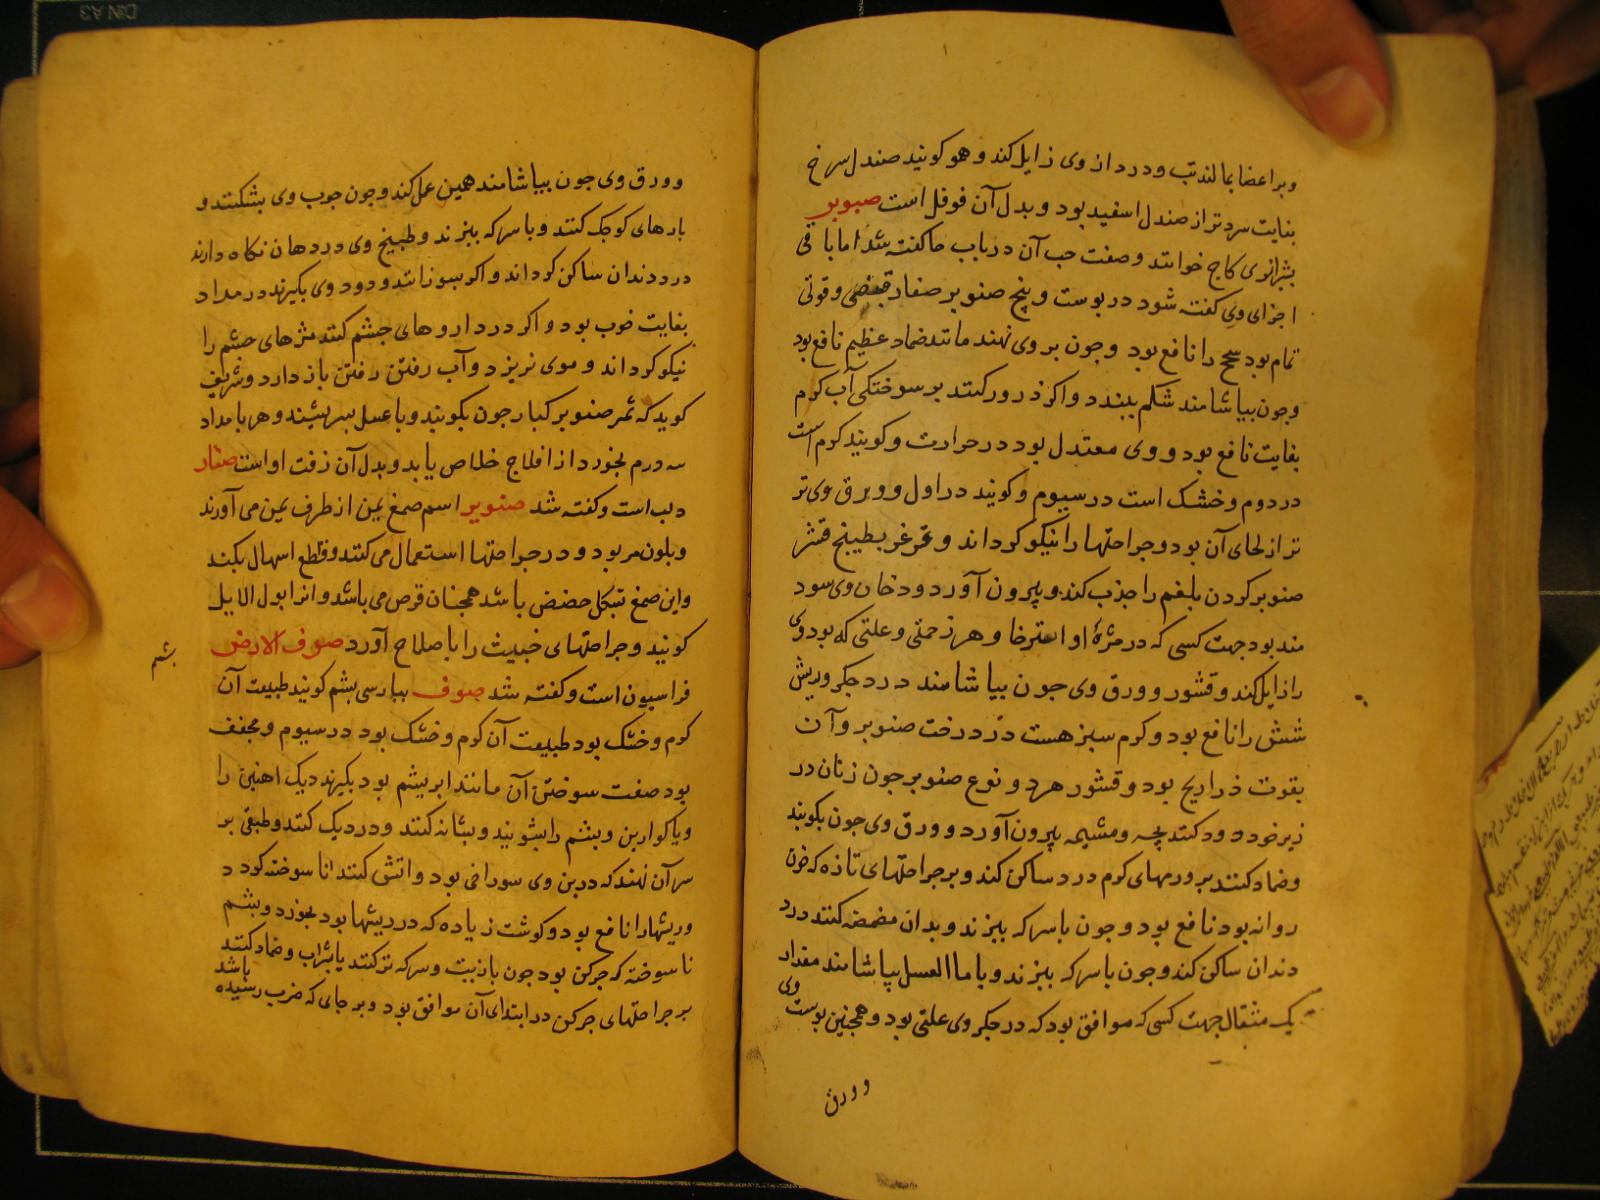 وبر اعضا بمالند تب و درد از وی زایل کند و هو کویند صندل سرخ
بغایت سردتر از صندل اسفید بود و بدل آن فوفل است صنوبر
بشیرازی کاج خوانند و صفت حب آن در باب حا کفته شد اما باقی
اجزای وی کفته شود در پوست و بیخ صنوبر صغار قبضی و قوتی
تمام بود سحج را نافع بود و جون بر وی نهند مانند ضماد عظیم نافع بود
و جون بیاشامند شکم ببندد و اکر ذرور کنند بر سوختکی آب کرم
بغایت نافع بود و وی معتدل بود در حرارت و کویند کرم است
در دوم و خشک است در سیوم و کویند در اول و ورق وی تر
تر از لحای آن بود و جراحتها را نیکو کرداند و غرغر بطبیخ قشر
صنوبر کردن بلغم را جذب کند و بیرون آورد و دخان وی سود
مند بود جهت کسی که در مژۀ او استرخا و هر زحمتی و علتی که بود وی
را زایل کند و قشور و ورق وی جون بیاشامند درد جکر و ریش
شش را نافع بود و کرم سبز هست در درخت صنوبر و آن
بقوت ذراریح بود و قشور هر دو نوع صنوبر جون زنان در
زیر خود دود کنند بچه و مشیمه بیرون آورد و ورق وی جون بکوبند
و ضماد کنند بر ورمهای کرم درد ساکن کند و بر جراحتهای تازه که خون
روانه بود نافع بود و جون با سرکه ببزند و بدان مضمضه کنند درد
دندان ساکن کند و جون با سرکه ببزند و با ما العسل بیاشامند مقدار
یک مثقال جهت کسی که موافق بود که در جکر وی علتی بود و همجنین پوست وی
و ورق
و ورق وی جون بیاشامند همین عمل کند و جون جوب وی بشکنند و
بارهای کوجک کنند و با سرکه ببزند و طبیخ وی در دهان نکاه دارند
درد دندان ساکن کرداند و اکر بسوزانند و دود وی بکیرند در مداد
بغایت خوب بود و اکر در داروهای جشم کنند مژهای جشم را
نیکو کرداند و موی نریزد و آب رفتن رفتن باز دارد و شریف
کوید که ثمر صنوبر کبار جون بکوبند و با عسل بسریشند و هر بامداد
سه درم بخورد از افلاج خلاص یابد و بدل آن زفت اواست صنار
دلب است و کفته شد صنوبر اسم صمغ یمن از طرف یمن می آورند
و بلون مر بود و در جراحتها استعمال می کنند و قطع اسهال بکند
و این صمغ بشکل حضض باشد همجنان قرص می باشد و انرا بول الابل
کویند و جراحتهای خبیث را با صلاح آورد صوف الارض
فراسیون است و کفته شد صوف ببارسی بشم کویند طبیعت آن
بشم
کرم و خشک بود طبیعت آن کرم و خشک بود در سیوم و مجفف
بود صفت سوختن آن مانند ابریشم بود بکیرند دیک اهنین را
و یا کوارین و بشم را بشویند و بشانه کنند و در دیک کنند و طبقی بر
سر آن نهند که در بن وی سوراخی بود و اتش کنند تا سوخته کردد
و ریشها را نافع بود و کوشت زیاده که در ریشها بود بخورد و بشم
ناسوخته که جرکن بود جون با زیت و سرکه تر کنند یا بشراب و ضماد کنند
بر جراحتهای جرکن در ابتدای آن موافق بود و بر جای که ضرب رسیده باشد